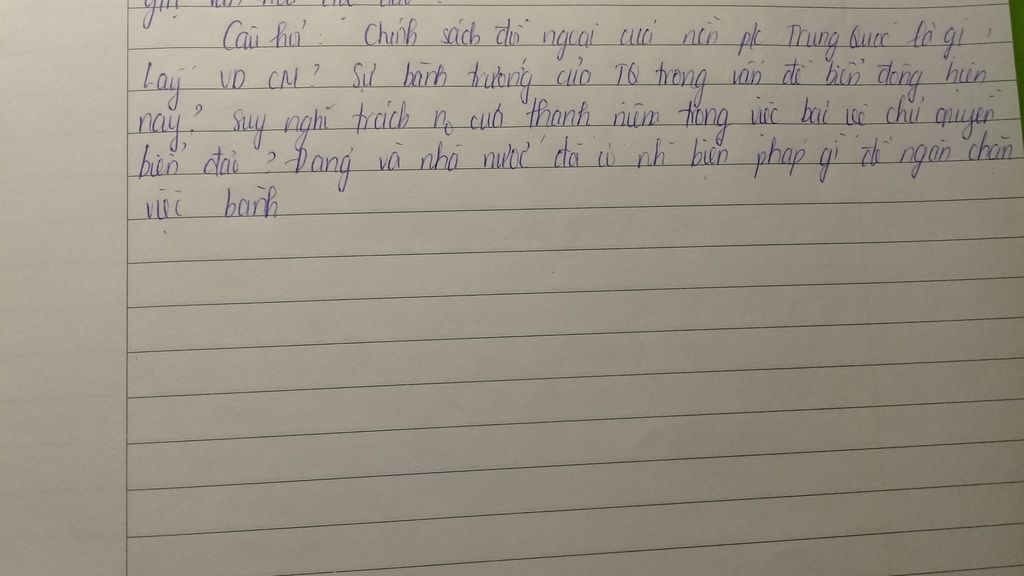 Câu hỏi : Chính sách đối ngoại của nền pk Trung Quốc là gì ?
Lấy VD CM ? Sự bành trướng của TQ trong vấn đề biển đông hiện
nay ? Suy nghĩ trách no của thanh niên trong việc bảo vệ chủ quyền
biển đảo ? Đảng và nhà nước đã có nh biện pháp gì để ngăn chặn
việc bành